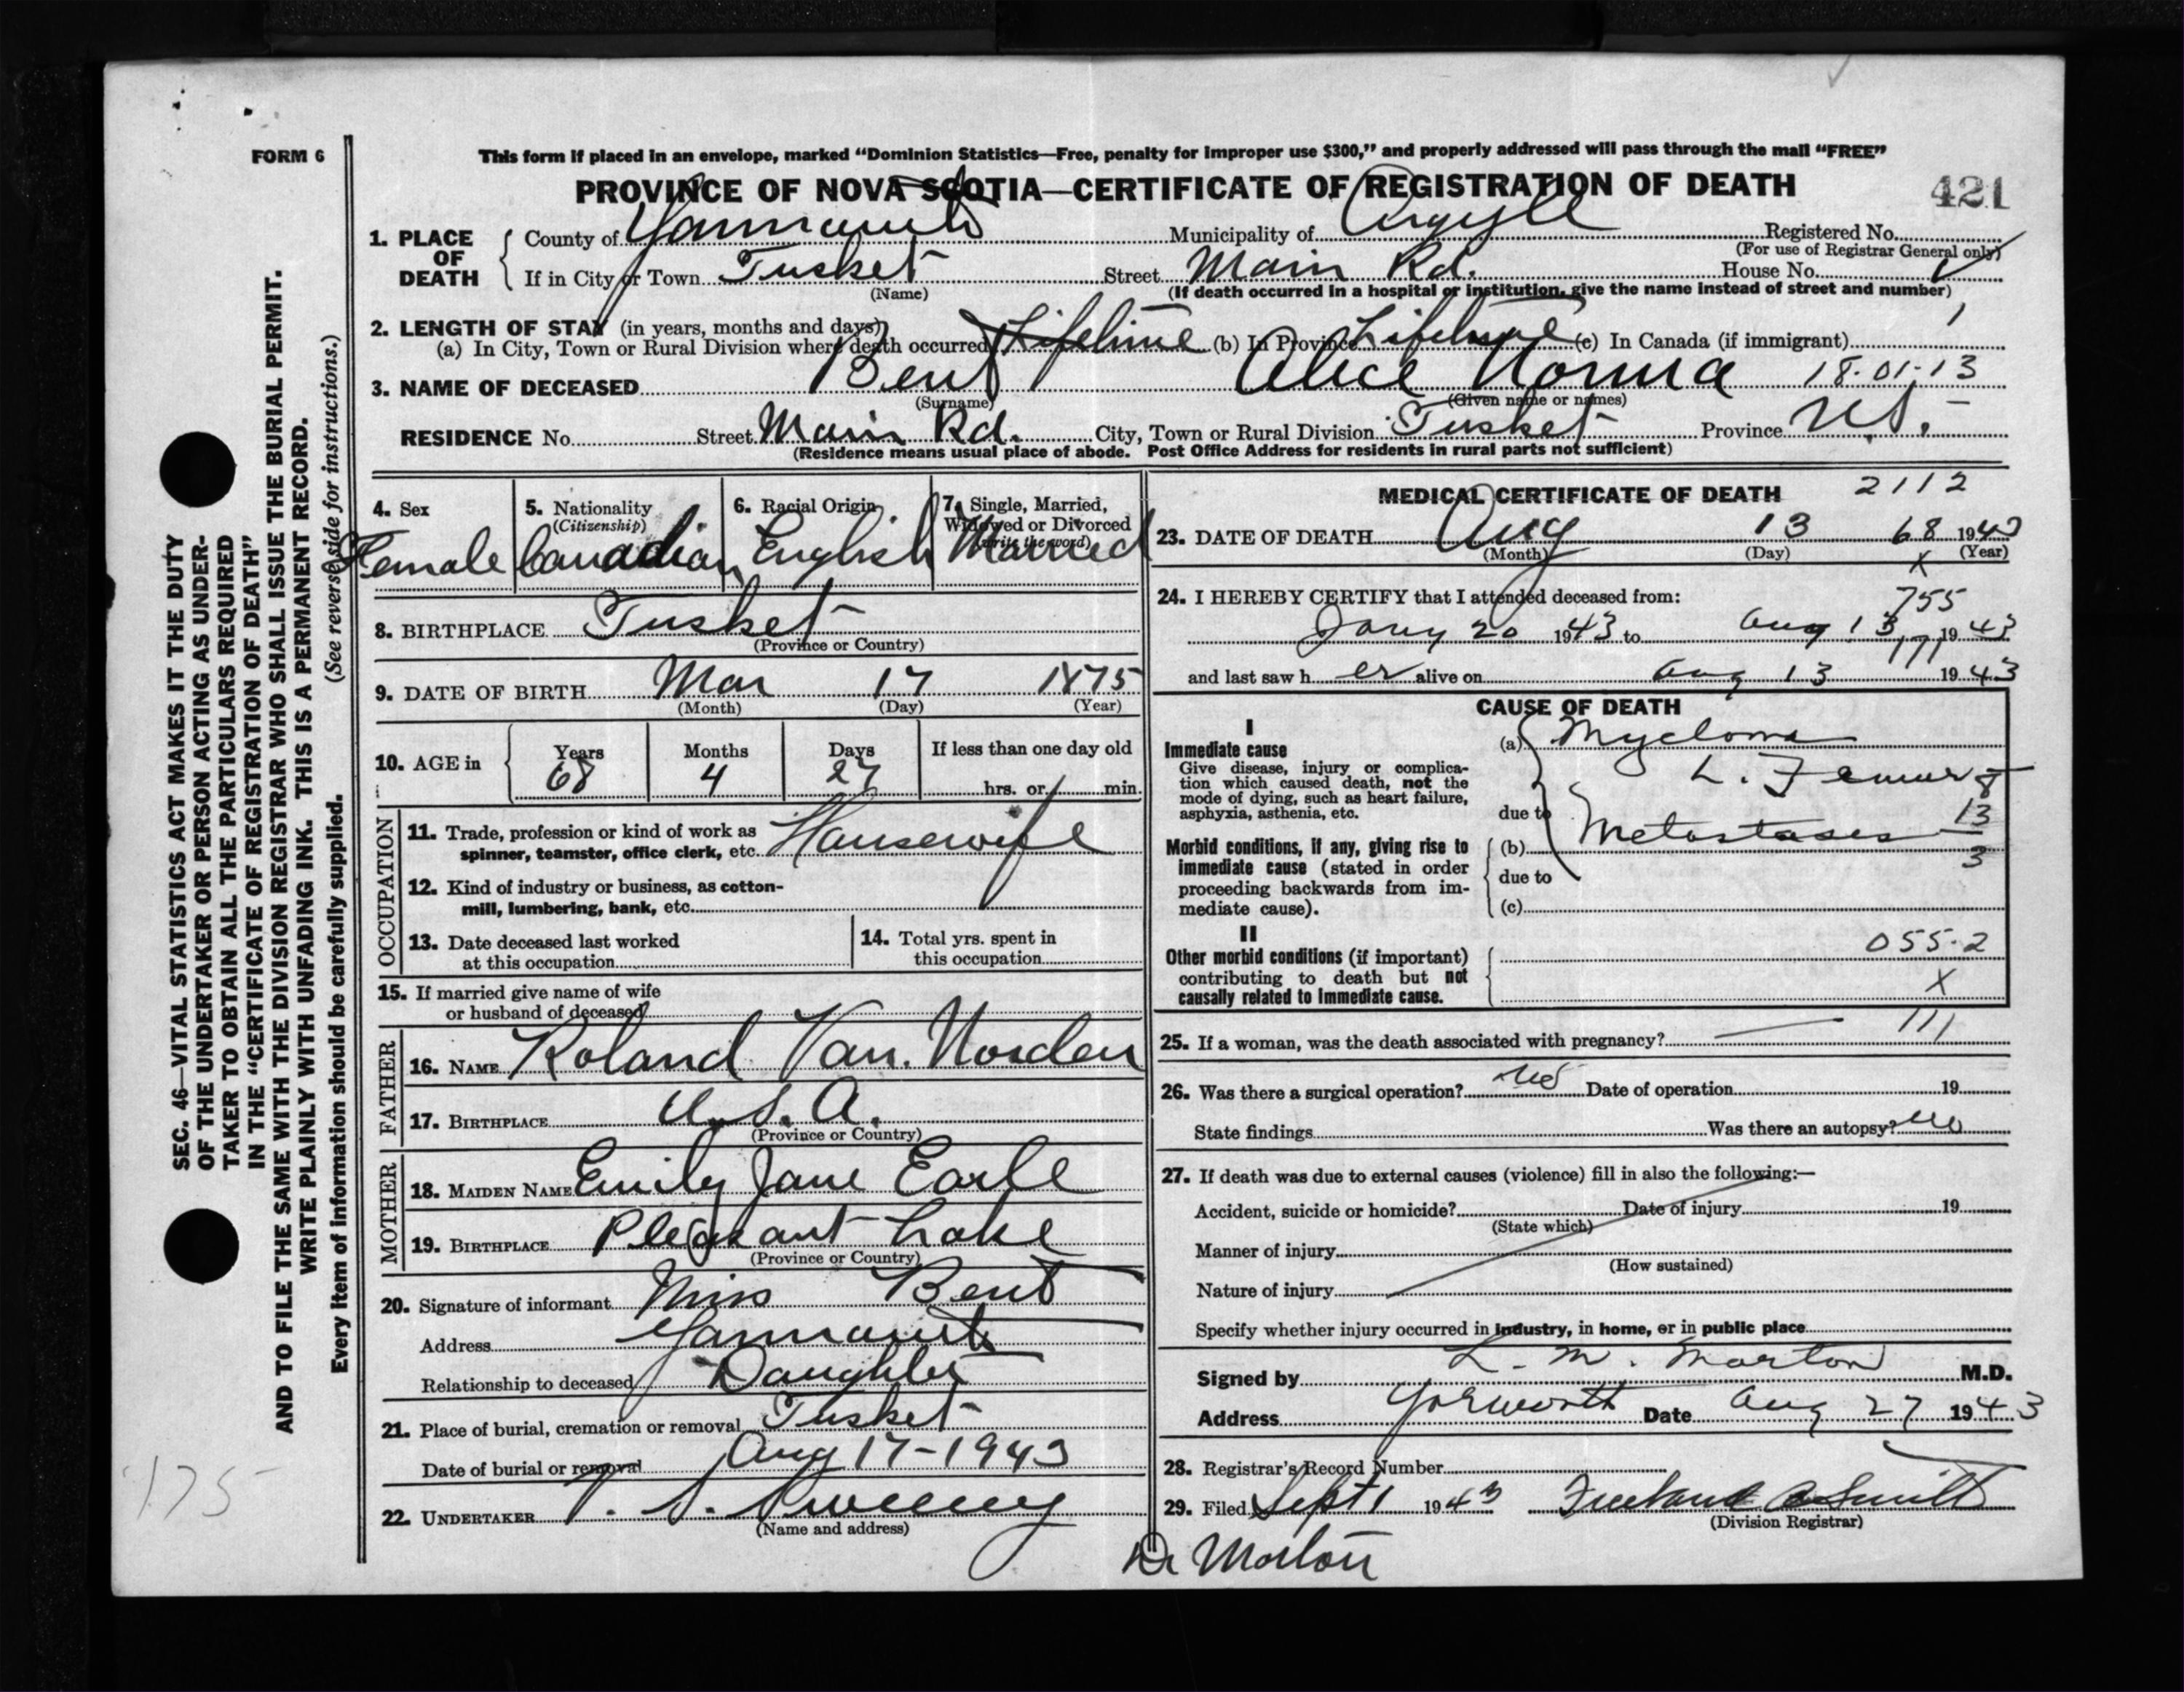 FORM 6
This form if placed in an envelope, marked “Dominion Statistics—Free, penalty for improper use $300,” and properly addressed will pass through the mail “FREE”
PROVINCE OF NOVA SCOTIA—CERTIFICATE OF REGISTRATION OF DEATH
421
1. PLACE OF DEATH
County of Yarmouth Municipality of Argyle Registered No.
(For use of Registrar General only)
If in City or Town Tusket Street Main Rd. House No.
(Name)
(If death occurred in a hospital or institution, give the name instead of street and number)
2. LENGTH OF STAY (in years, months and days)
(a) In City, Town or Rural Division where death occurred Lifetime (b) In Province Lifetime (c) In Canada (if immigrant)
3. NAME OF DECEASED Bent Alice Norma 18-01-13
(Surname) (Given name or names)
RESIDENCE No. Street Main Rd. City, Town or Rural Division Tusket Province N.S.
(Residence means usual place of abode. Post Office Address for residents in rural parts not sufficient)
4. Sex
Female
5. Nationality
(Citizenship)
Canadian
6. Racial Origin
English
7. Single, Married,
Widowed or Divorced
(write the word)
Married
8. BIRTHPLACE Tusket
(Province or Country)
9. DATE OF BIRTH Mar 17 1875
(Month) (Day) (Year)
10. AGE in
Years Months Days If less than one day old
68 4 27 hrs. or min.
OCCUPATION
11. Trade, profession or kind of work as
spinner, teamster, office clerk, etc. Housewife
12. Kind of industry or business, as cotton-
mill, lumbering, bank, etc.
13. Date deceased last worked
at this occupation
14. Total yrs. spent in
this occupation
15. If married give name of wife
or husband of deceased
FATHER
16. NAME Roland Van. Norden
17. BIRTHPLACE U.S.A.
(Province or Country)
MOTHER
18. MAIDEN NAME Emily Jane Earle
19. BIRTHPLACE Pleasant Lake
(Province or Country)
20. Signature of informant Miss Bent
Address Yarmouth
Relationship to deceased Daughter
21. Place of burial, cremation or removal Tusket
Date of burial or removal Aug 17-1943
22. UNDERTAKER V. S. Sweeny
(Name and address)
MEDICAL CERTIFICATE OF DEATH 2112
23. DATE OF DEATH Aug 13 68 1943
(Month) (Day) (Year)
X
24. I HEREBY CERTIFY that I attended deceased from:
755
Jany 20 1943 to Aug 13 1943
171
and last saw her alive on Aug 13 1943
CAUSE OF DEATH
I
Immediate cause
Give disease, injury or complica-
tion which caused death, not the
mode of dying, such as heart failure,
asphyxia, asthenia, etc.
(a) Myeloma
L. Femur
8
due to
13
Morbid conditions, if any, giving rise to
immediate cause (stated in order
proceeding backwards from im-
mediate cause).
(b) Metastases
3
due to
(c)
II
Other morbid conditions (if important)
contributing to death but not
causally related to immediate cause.
055.2
X
25. If a woman, was the death associated with pregnancy? — 111
26. Was there a surgical operation? No Date of operation 19
State findings Was there an autopsy? No
27. If death was due to external causes (violence) fill in also the following:—
Accident, suicide or homicide? Date of injury 19
(State which)
Manner of injury
(How sustained)
Nature of injury
Specify whether injury occurred in industry, in home, or in public place
Signed by L. M. Morton M.D.
Address Yarmouth Date Aug 27 1943
28. Registrar's Record Number
29. Filed Sept 1 1943 Smith
(Division Registrar)
Dr Morton
SEC. 46—VITAL STATISTICS ACT MAKES IT THE DUTY
OF THE UNDERTAKER OR PERSON ACTING AS UNDER-
TAKER TO OBTAIN ALL THE PARTICULARS REQUIRED
IN THE “CERTIFICATE OF REGISTRATION OF DEATH”
AND TO FILE THE SAME WITH THE DIVISION REGISTRAR WHO SHALL ISSUE THE BURIAL PERMIT.
WRITE PLAINLY WITH UNFADING INK. THIS IS A PERMANENT RECORD.
Every item of information should be carefully supplied. (See reverse side for instructions.)
175